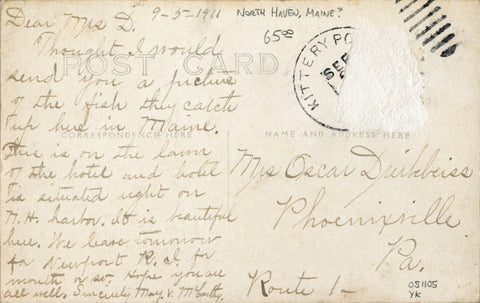 Dear Mrs D. 9-5-1911
NORTH HAVEN, MAINE?
6500
Thought I would
send you a picture
of the fish they catch
up here in Maine.
This is on the lawn
of the hotel and hotel
is situated right on
N.H. harbor. It is beautiful
here. We leave tomorrow
for Newport R.I. for
month or so. Hope you are
all well. Sincerely May V. McCarthy
POST CARD
CORRESPONDENCE HERE
NAME AND ADDRESS HERE
KITTERY PO
SEP
Mrs Oscar
Phoenixville
Pa.
Route 1-
OS1105
YK